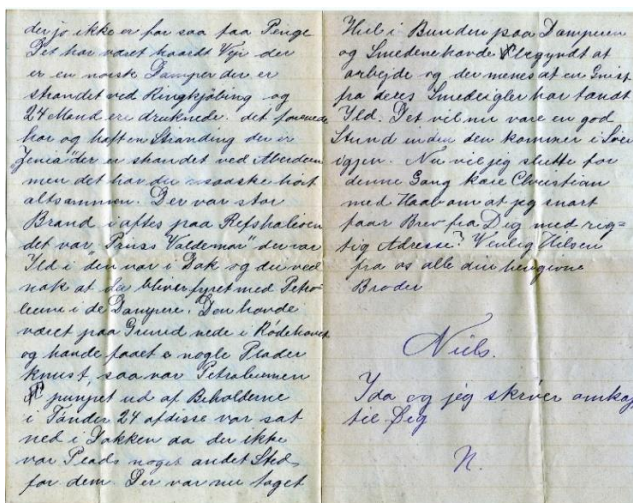 der jo ikke er for saa faa Penge
Det har været haardt Vejr der
er en norsk Damper der er
strandet ved Ringkjøbing og
24 Mand ere druknede. det forenede
har og haft en Stranding der er
"Xenia" der er strandet ved Aberdeen
men det har du maaske hørt
altsammen. Der var stor
Brand i aftes paa Refshaleøen
det var "Prins Valdemar" der var
Ild i den var i Dok og du ved
nok at der bliver fyret med Petro-
leum i de Dampere. Den havde
været paa Grund nede i Rødehavet
og havde faaet nogle Plader
knust, saa var Petroleumen
pumpet ud af Beholderne
i Tønder 24 af disse var sat
ned i Dokken da der ikke
var Plads noget andet Sted
for dem. Der var nu taget
Hul i Bunden paa Damperen
og Smedene havde begyndt at
arbejde og der menes at en Gnist
fra deres har tændt
Ild. Det vil nu vare en god
Stund inden den kommer i
igjen. Nu vil jeg slutte for
denne Gang kære Christian
med Haab om at jeg snart
faar Brev fra Dig med rig-
tig Adresse? Venlig Hilsen
fra os alle din hengivne
Broder
Niels.
Ida og jeg skriver
til Dig
N.